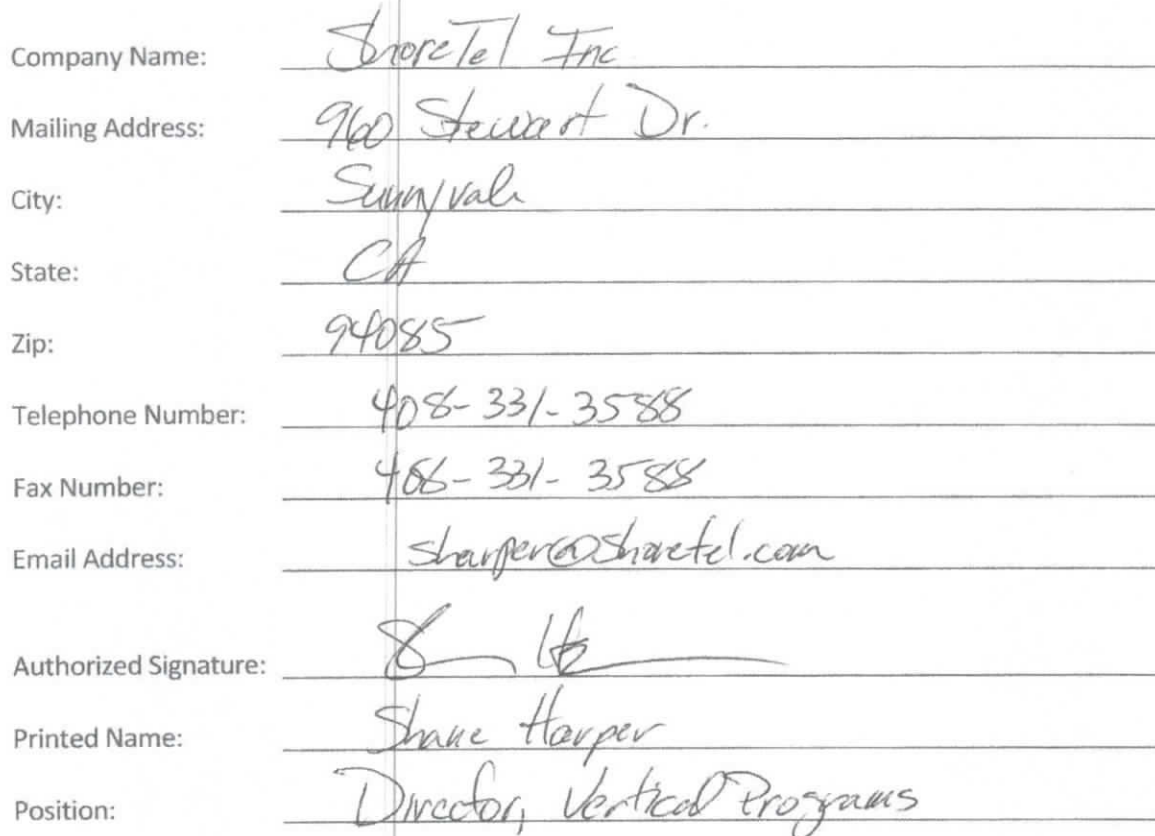 Company Name: ShoreTel Inc
Mailing Address: 960 Stewart Dr.
City: Sunnyvale
State: CA
Zip: 94085
Telephone Number: 408-331-3588
Fax Number: 408-331-3588
Email Address: sharper@shoretel.com
Authorized Signature:
Printed Name: Shane Harper
Position: Director, Vertical Programs